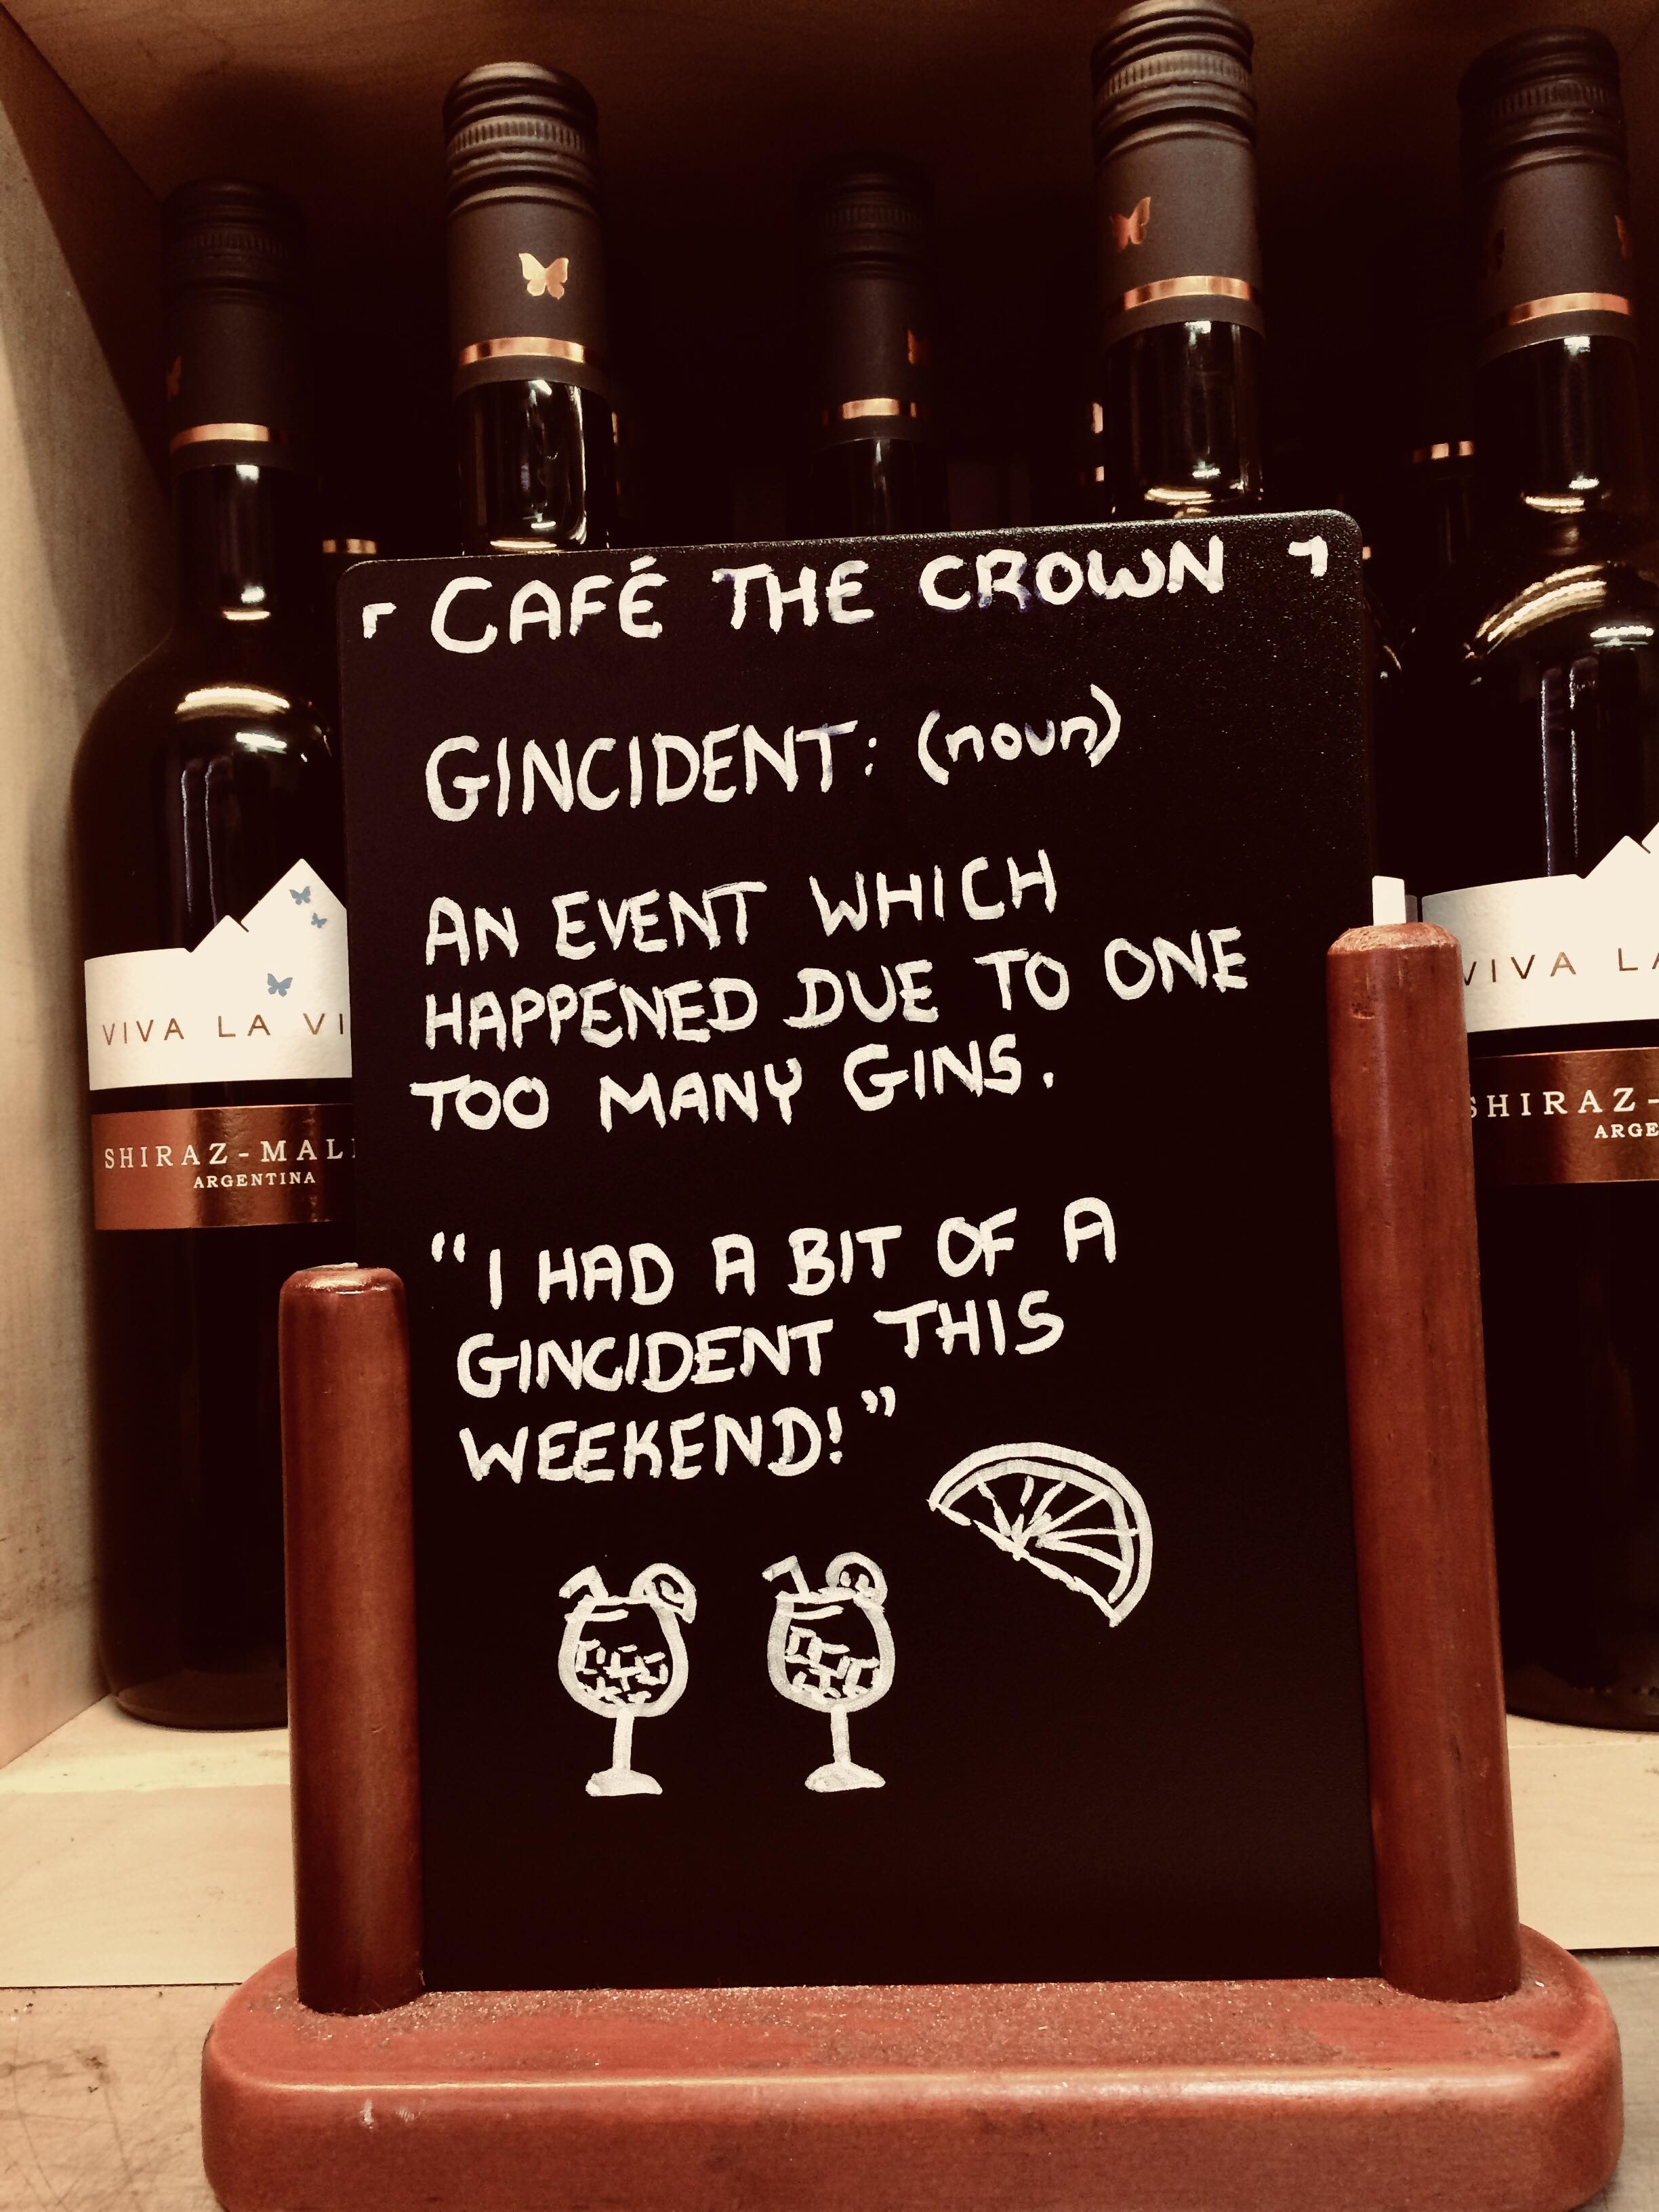 CAFÉ THE CROWN
GINCIDENT: (noun)
AN EVENT WHICH
HAPPENED DUE TO ONE
TOO MANY GINS.
"I HAD A BIT OF A
GINCIDENT THIS
WEEKEND!"
VIVA LA VI
SHIRAZ-MAL
ARGENTINA
VIVA LA
SHIRAZ-
ARGE